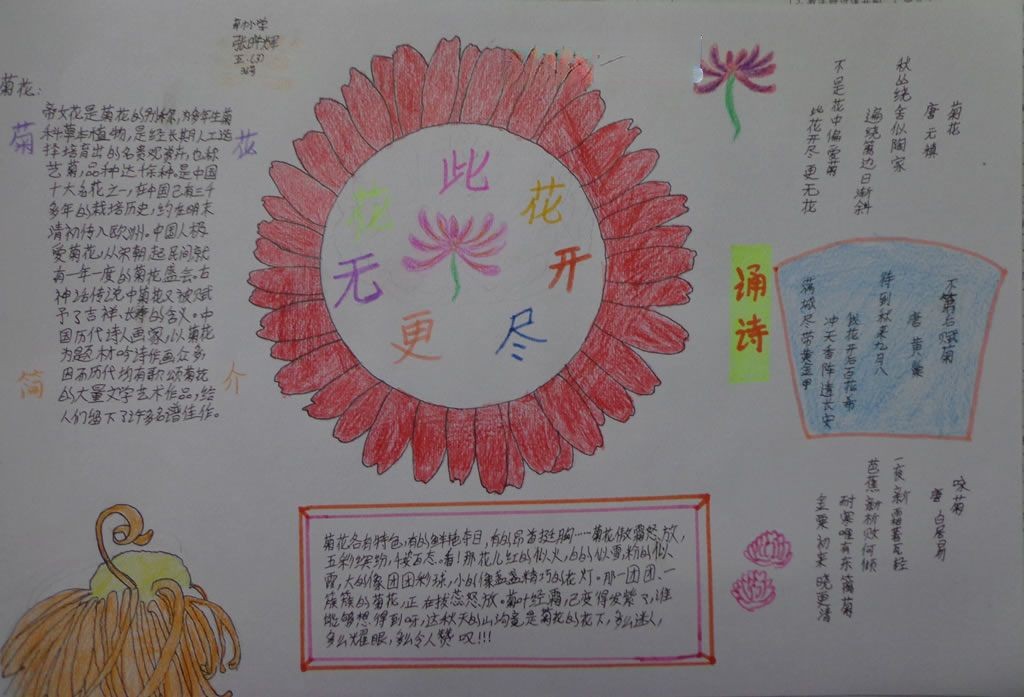 小学
五.(3)
菊花:
帝女花是菊花的别称,为多年生菊
科草本植物,是经长期人工选
择培育出的名贵观赏花,也称
艺菊,品种达千余种。是中国
十大名花之一,在中国已有三千
多年的栽培历史,约在明末
清初传入欧洲。中国人极
爱菊花,从宋朝起民间就
有一年一度的菊花盛会。古
神话传说中菊花又被赋
予了吉祥、长寿的含义。中
国历代诗人画家,以菊花
为题材吟诗作画众多,
因而历代均有歌颂菊花
的大量文学艺术作品,给
人们留下了许多名谱佳作。
菊
花
简
介
此
花
开
尽
更
无
花
菊花各有特色,有的鲜艳夺目,有的昂首挺胸……菊花傲霜怒放,
五彩缤纷,千姿百态。看!那花儿红的似火,白的似雪,粉的似
霞,大的像团团彩球,小的像盏盏精巧的花灯。那一团团、一
簇簇的菊花,正在拔蕊怒放。菊叶经霜,已变得发紫了,谁
能够想得到呀,这秋天的山沟竟是菊花的花下,多么迷人,
多么耀眼,多么令人赞叹!!!
菊花
唐 元稹
秋丛绕舍似陶家
遍绕篱边日渐斜
不是花中偏爱菊
此花开尽更无花
诵
诗
不第后赋菊
唐 黄巢
待到秋来九月八
我花开后百花杀
冲天香阵透长安
满城尽带黄金甲
咏菊
唐 白居易
一夜新霜著瓦轻
芭蕉新折败何倾
耐寒唯有东篱菊
金粟初来晓更清